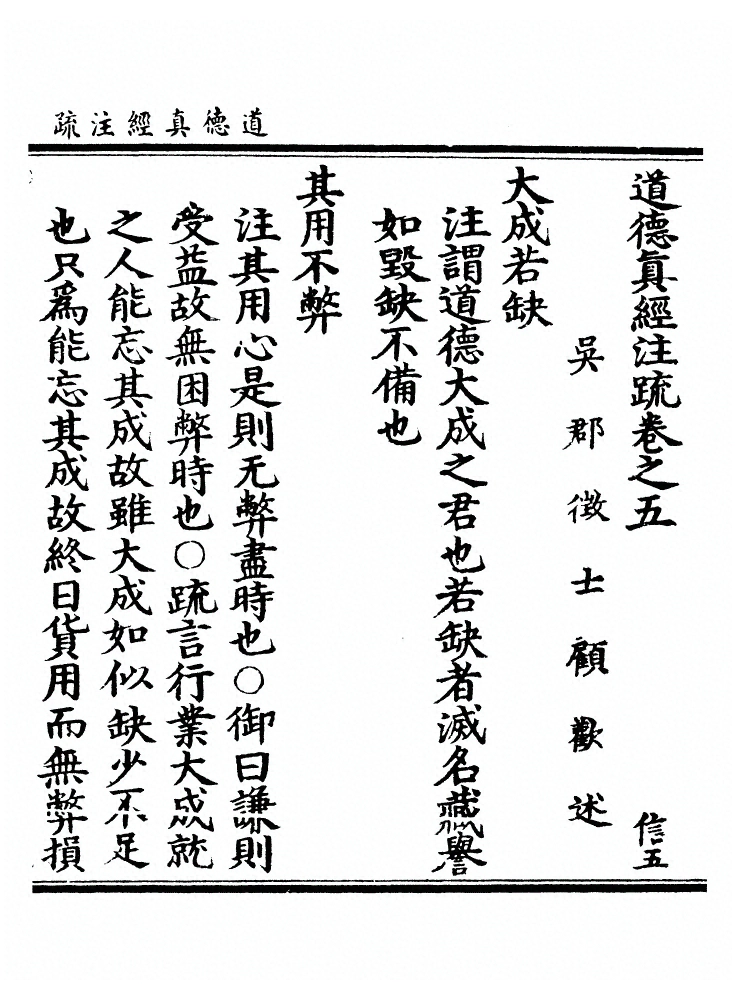 道德真經注疏
道德眞經注疏卷之五
信五
吳郡徵士顧歡述
大成若缺
注謂道德大成之君也若缺者滅名藏譽
如毀缺不備也
其用不弊
注其用心是則无弊盡時也○御曰謙則
受益故無困弊時也○疏言行業大成就
之人能忘其成故雖大成如似缺少不足
也只爲能忘其成故終日貨用而無弊損